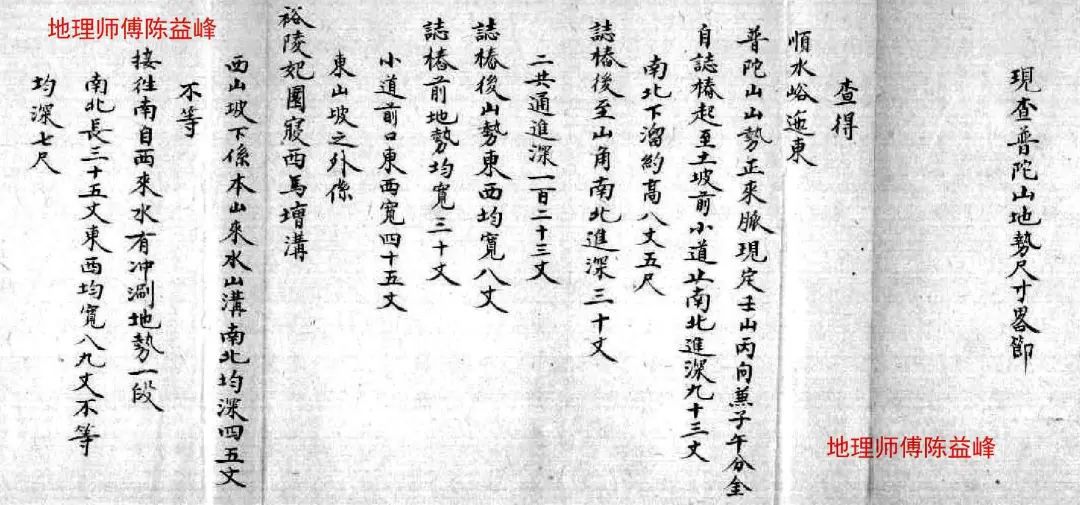 地理师傅陈益峰
現查普陀山地勢尺寸畧節
順水峪迤東
查得
普陀山山勢正來脈現定壬山丙向兼子午分金
自誌樁起至土坡前小道止南北進深九十三丈
南北下溜約高八丈五尺
誌樁後至山角南北進深三十丈
二共通進深一百二十三丈
誌樁後山勢東西均寬八丈
誌樁前地勢均寬三十丈
小道前口東西寬四十五丈
東山坡之外係
裕陵妃園寢西馬墻溝
西山坡下係本山來水山溝南北均深四五丈
不等
接徃南自西來水有冲涮地勢一段
南北長三十五丈東西均寬八九丈不等
均深七尺
地理师傅陈益峰